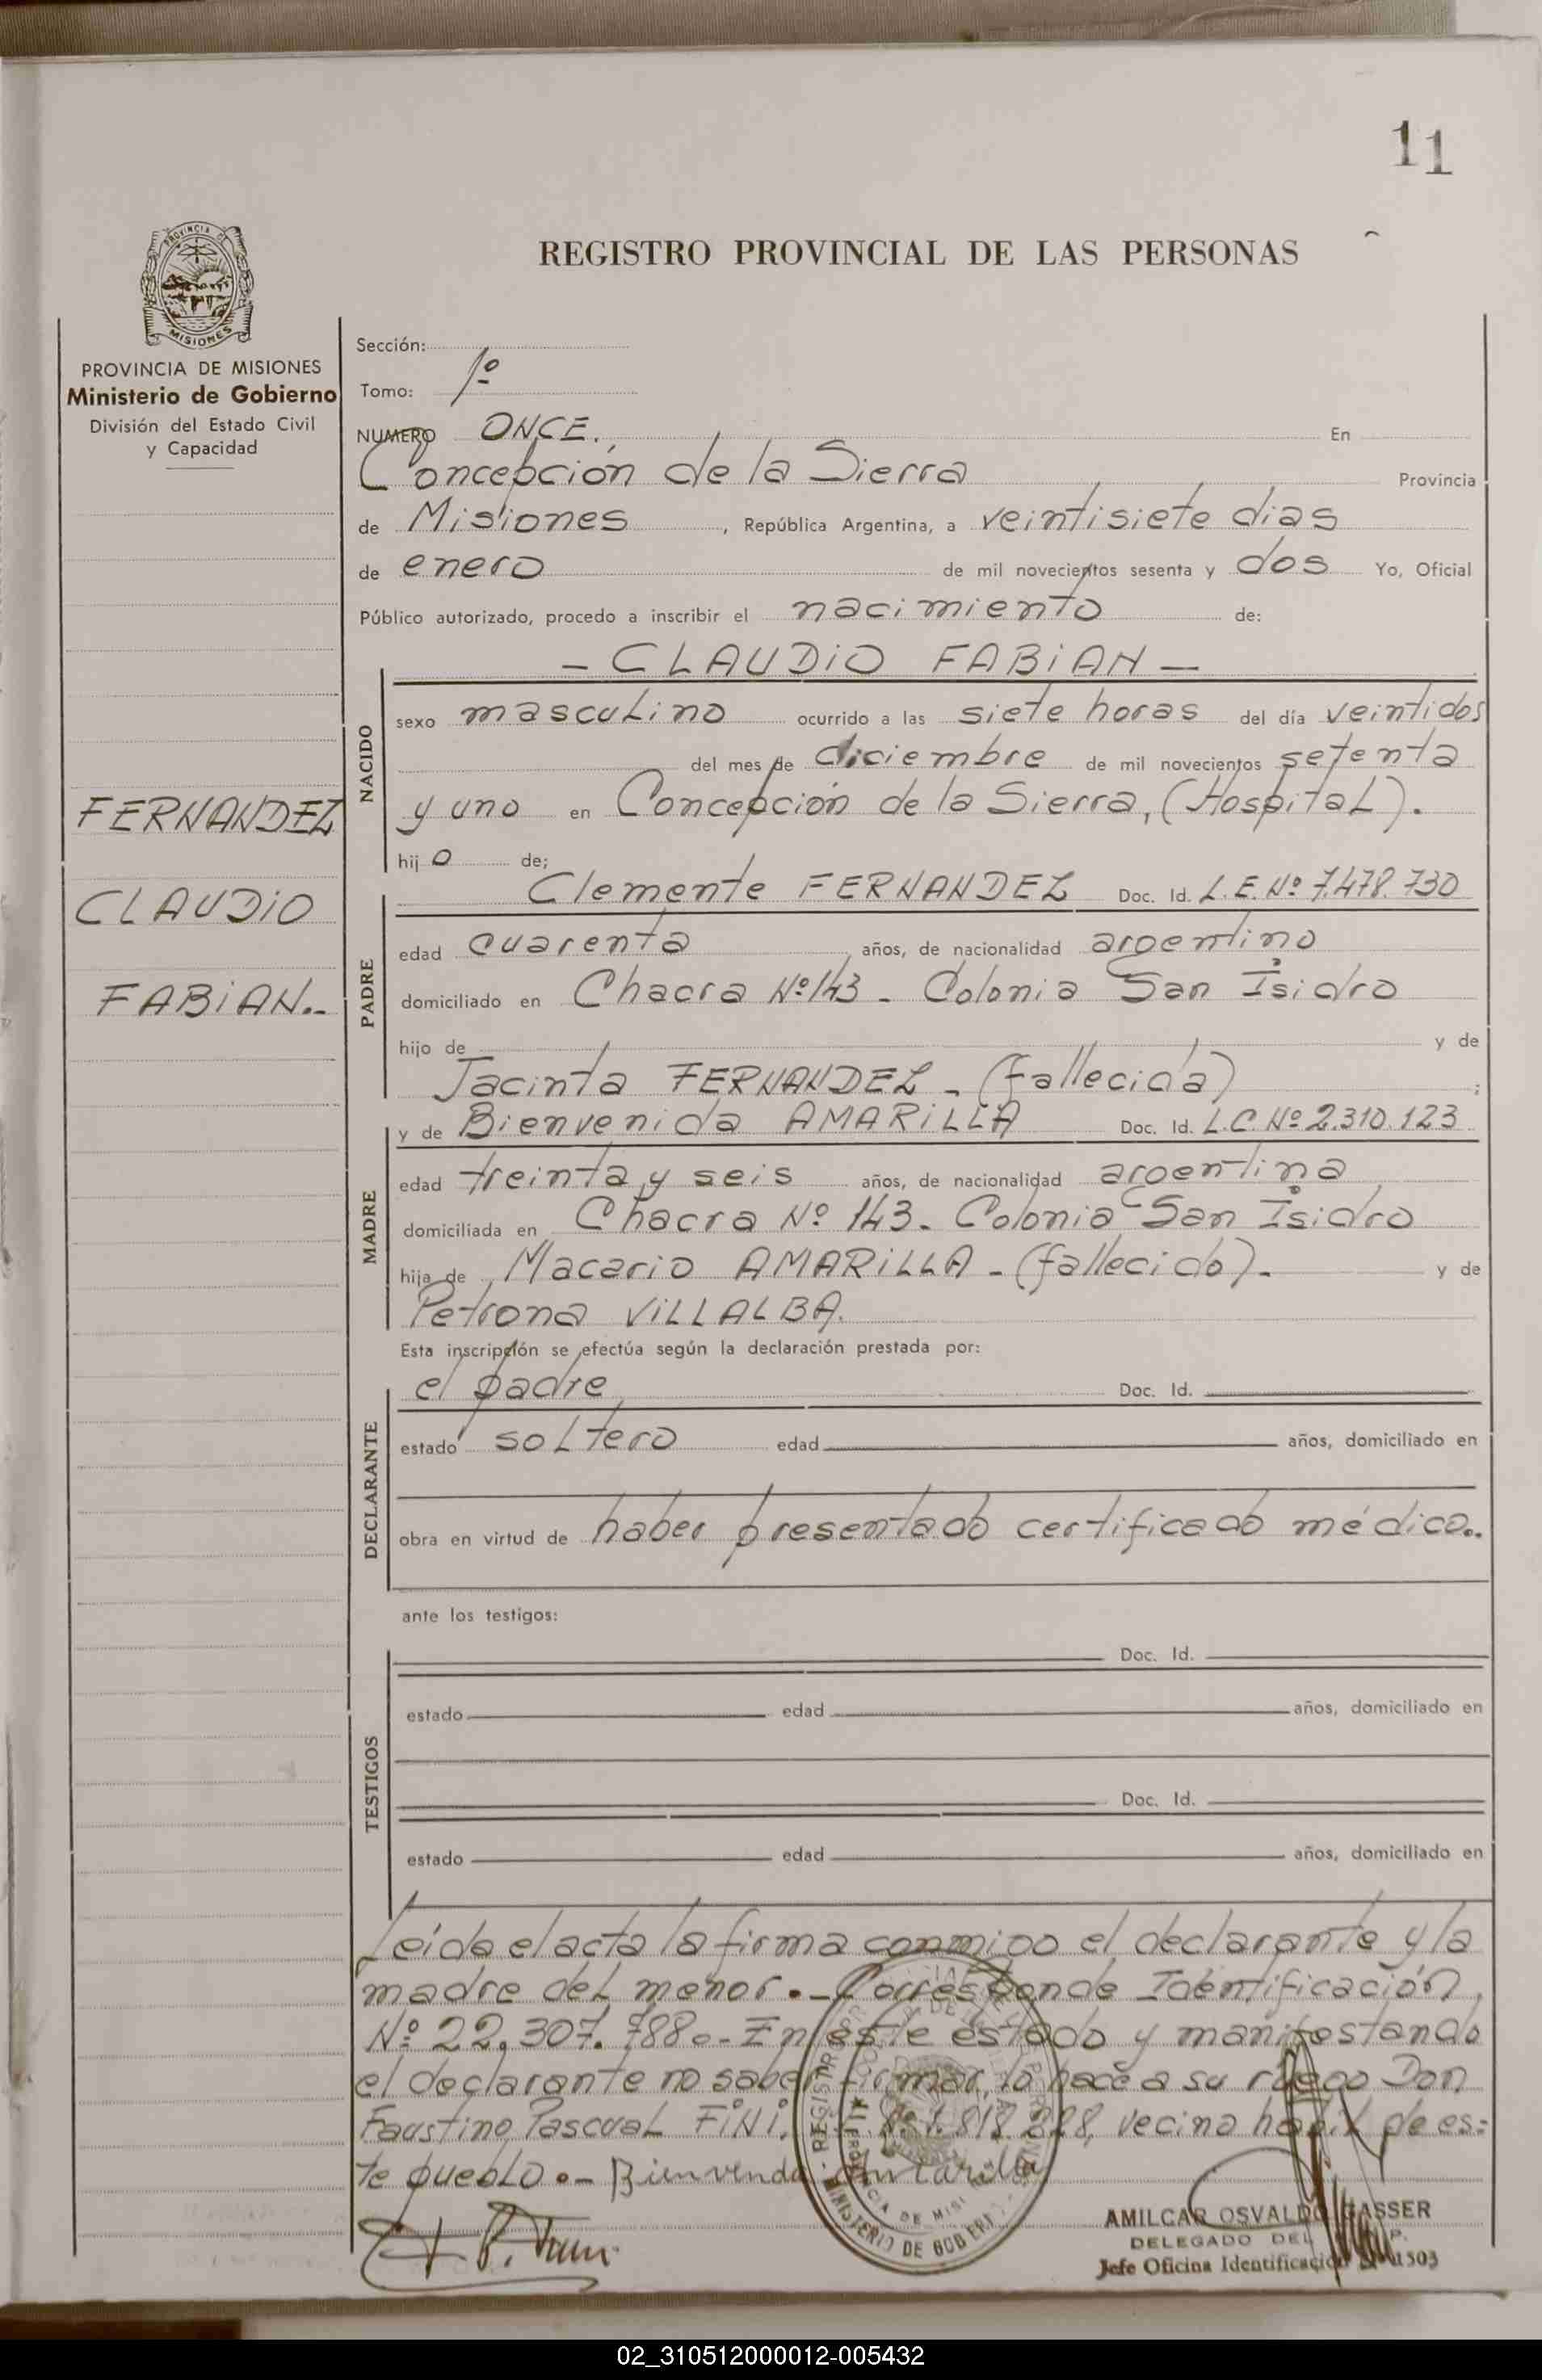 11
REGISTRO PROVINCIAL DE LAS PERSONAS
PROVINCIA DE MISIONES
Ministerio de Gobierno
División del Estado Civil
y Capacidad
FERNANDEZ
CLAUDIO
FABIAN.-
Sección:
Tomo: 1º
NUMERO ONCE., En
Concepción de la Sierra Provincia
de Misiones, República Argentina, a veintisiete dias
de enero de mil novecientos sesenta y dos Yo, Oficial
Público autorizado, procedo a inscribir el nacimiento de:
- CLAUDIO FABIAN -
NACIDO
sexo masculino ocurrido a las siete horas del día veintidos
del mes de diciembre de mil novecientos setenta
y uno en Concepción de la Sierra, (Hospital).
hijo de;
Clemente FERNANDEZ Doc. Id. L.E. Nº 7.478.730
PADRE
edad cuarenta años, de nacionalidad argentino
domiciliado en Chacra Nº 143 - Colonia San Isidro
hijo de y de
Jacinta FERNANDEZ - (fallecida) ;
y de Bienvenida AMARILLA Doc. Id. L.C. Nº 2.310.123
MADRE
edad treinta y seis años, de nacionalidad argentina
domiciliada en Chacra Nº 143 - Colonia San Isidro
hija de Macario AMARILLA - (fallecido). - y de
Petrona VILLALBA.
Esta inscripción se efectúa según la declaración prestada por:
el padre Doc. Id.
DECLARANTE
estado soltero edad años, domiciliado en
obra en virtud de haber presentado certificado médico..
ante los testigos:
Doc. Id.
TESTIGOS
estado edad años, domiciliado en
Doc. Id.
estado edad años, domiciliado en
Leída el acta la firma conmigo el declarante y la
madre del menor.- Corresponde Identificación
Nº 22.307.788.- En este estado y manifestando
el declarante no saber firmar, lo hace a su ruego Don
Faustino Pascual FINI, vecino habil de es=
te pueblo.- Bienvenida Amarilla
MINISTERIO DE GOBIERNO
AMILCAR OSVALDO GASSER
DELEGADO DEL
Jefe Oficina Identificación 1503
02_310512000012-005432